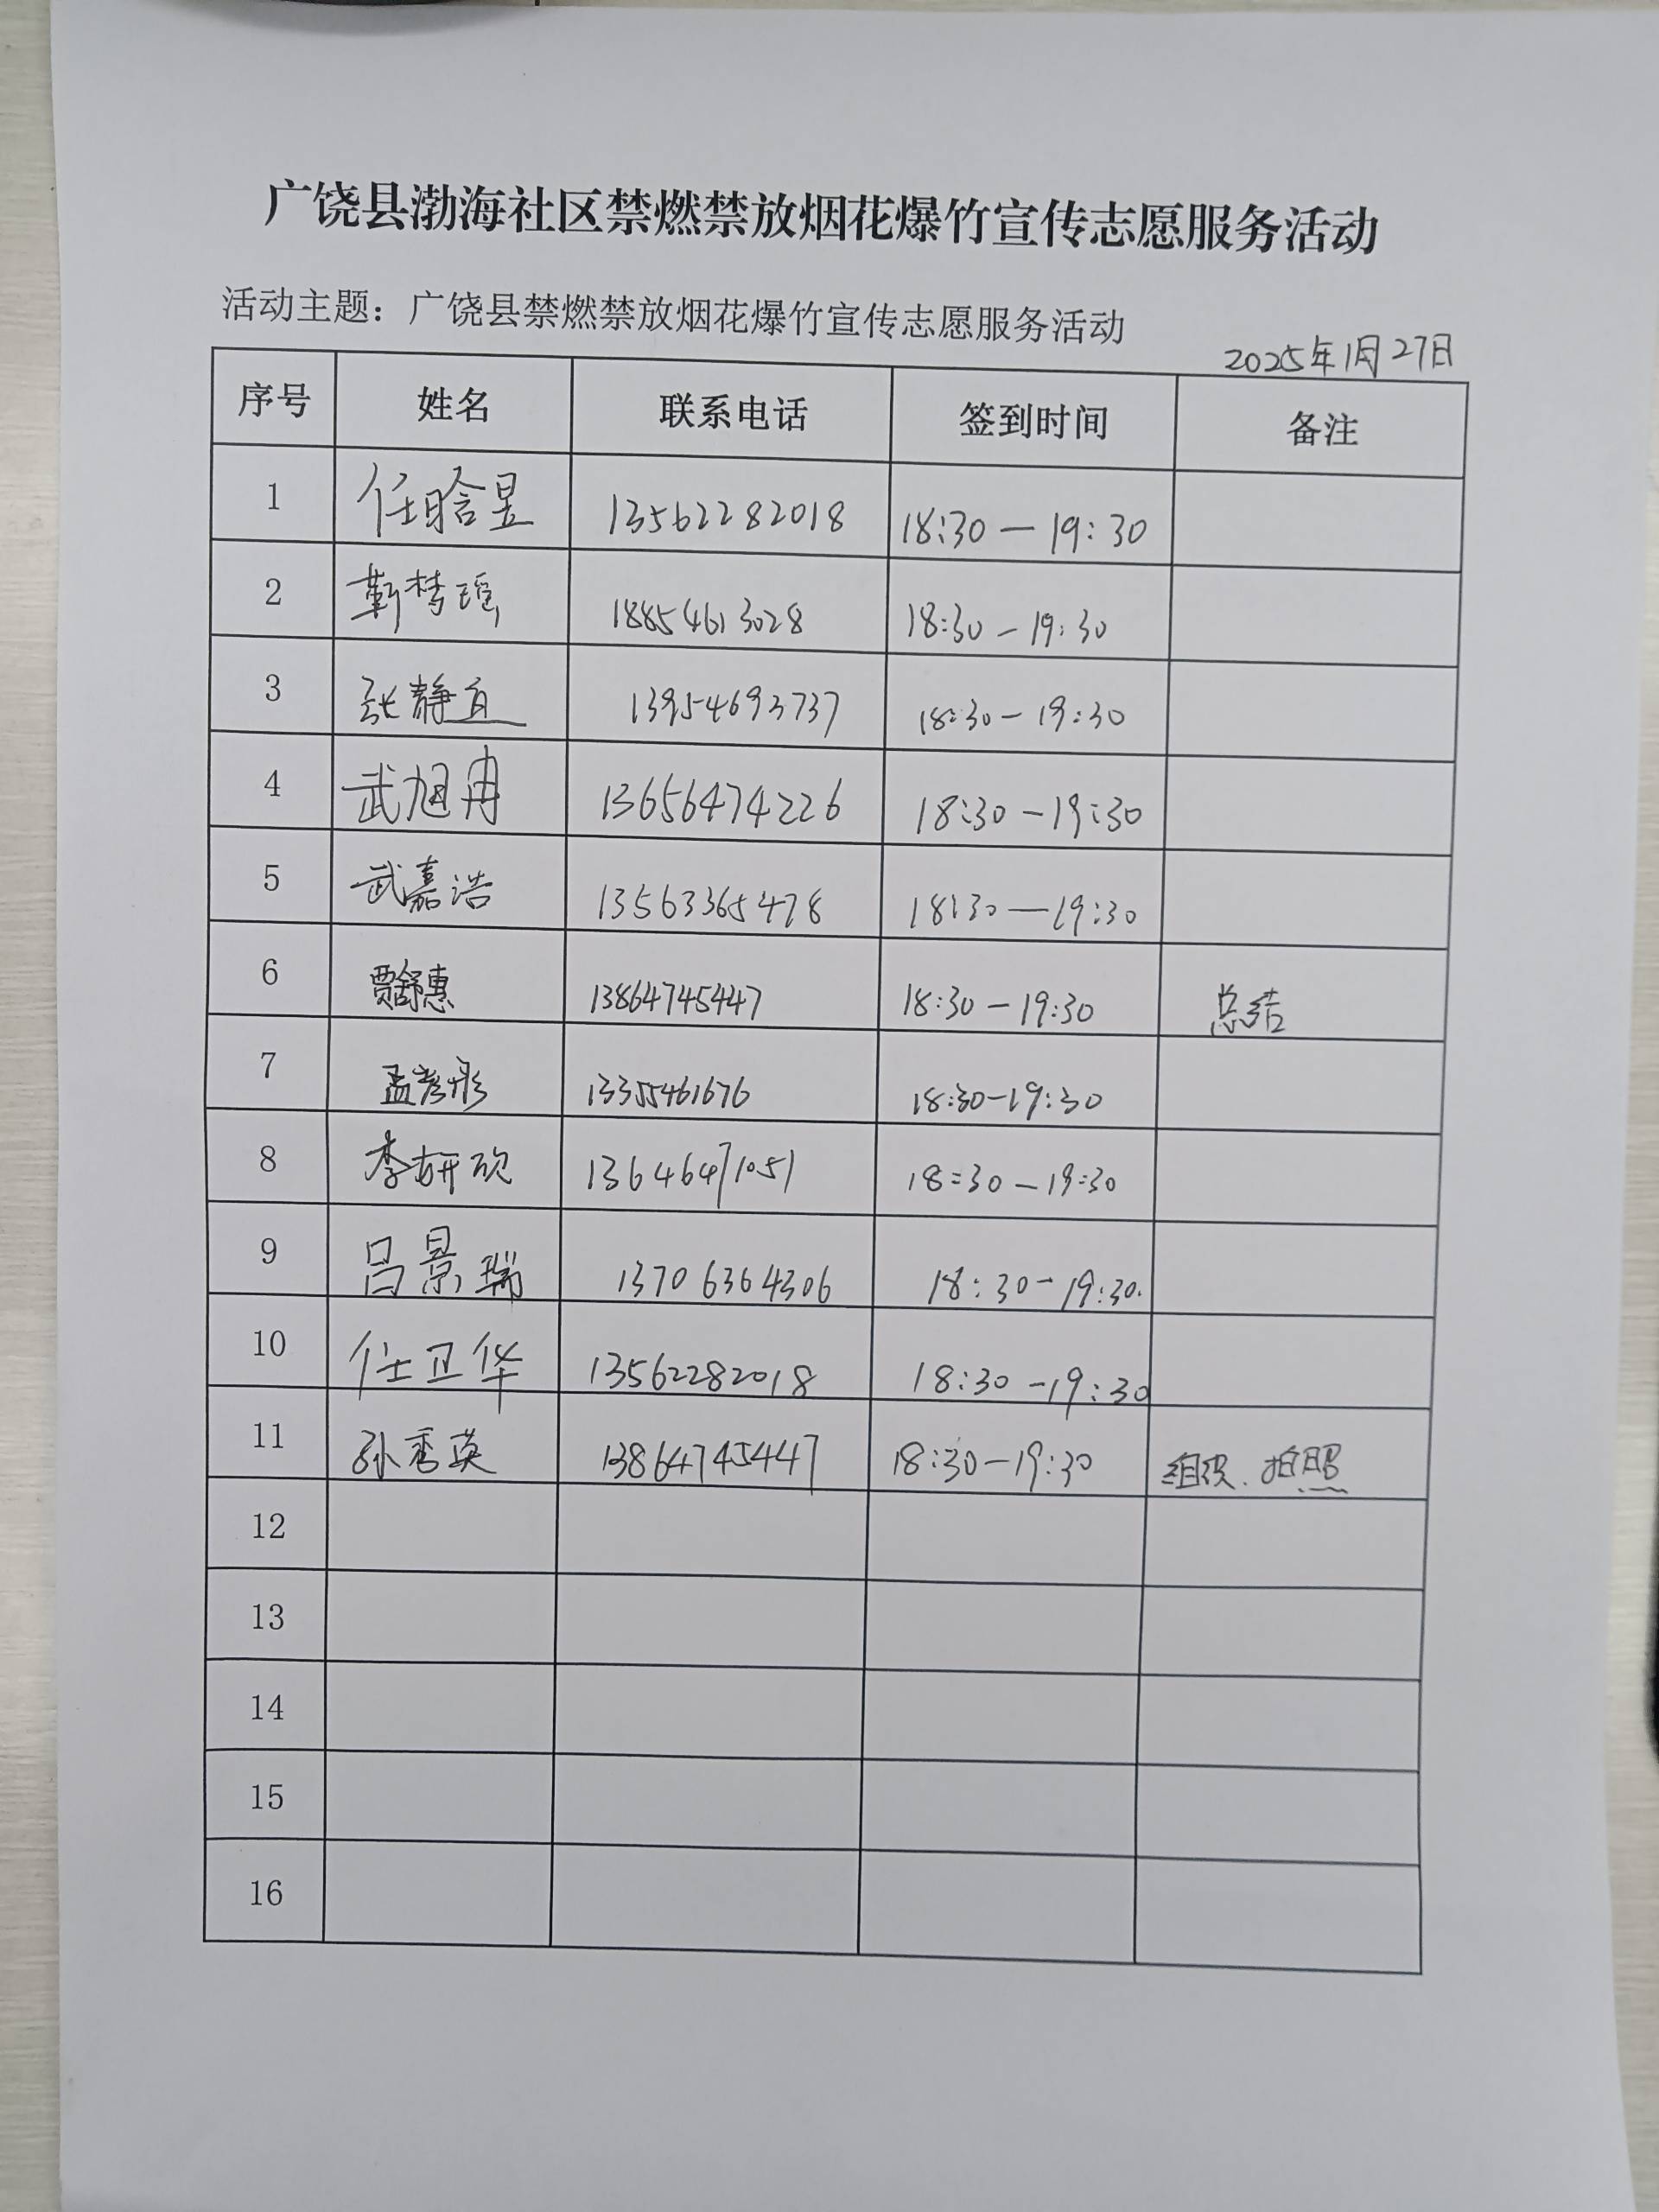 广饶县渤海社区禁燃禁放烟花爆竹宣传志愿服务活动
活动主题：广饶县禁燃禁放烟花爆竹宣传志愿服务活动
2025年1月27日
序号 姓名 联系电话 签到时间 备注
1 任晗昱 13562282018 18:30—19:30
2 靳梦瑶 18854613028 18:30—19:30
3 张静宜 13954693737 18:30—19:30
4 武旭冉 13656474226 18:30—19:30
5 武嘉浩 13563365478 18:30—19:30
6 贾舒惠 13864745447 18:30—19:30 总结
7 孟彦彤 13355461676 18:30—19:30
8 李妍砚 13646471051 18:30—19:30
9 吕景瑞 13706364306 18:30—19:30.
10 任卫华 13562282018 18:30—19:30
11 孙秀英 13864745447 18:30—19:30 组织、拍照
12
13
14
15
16